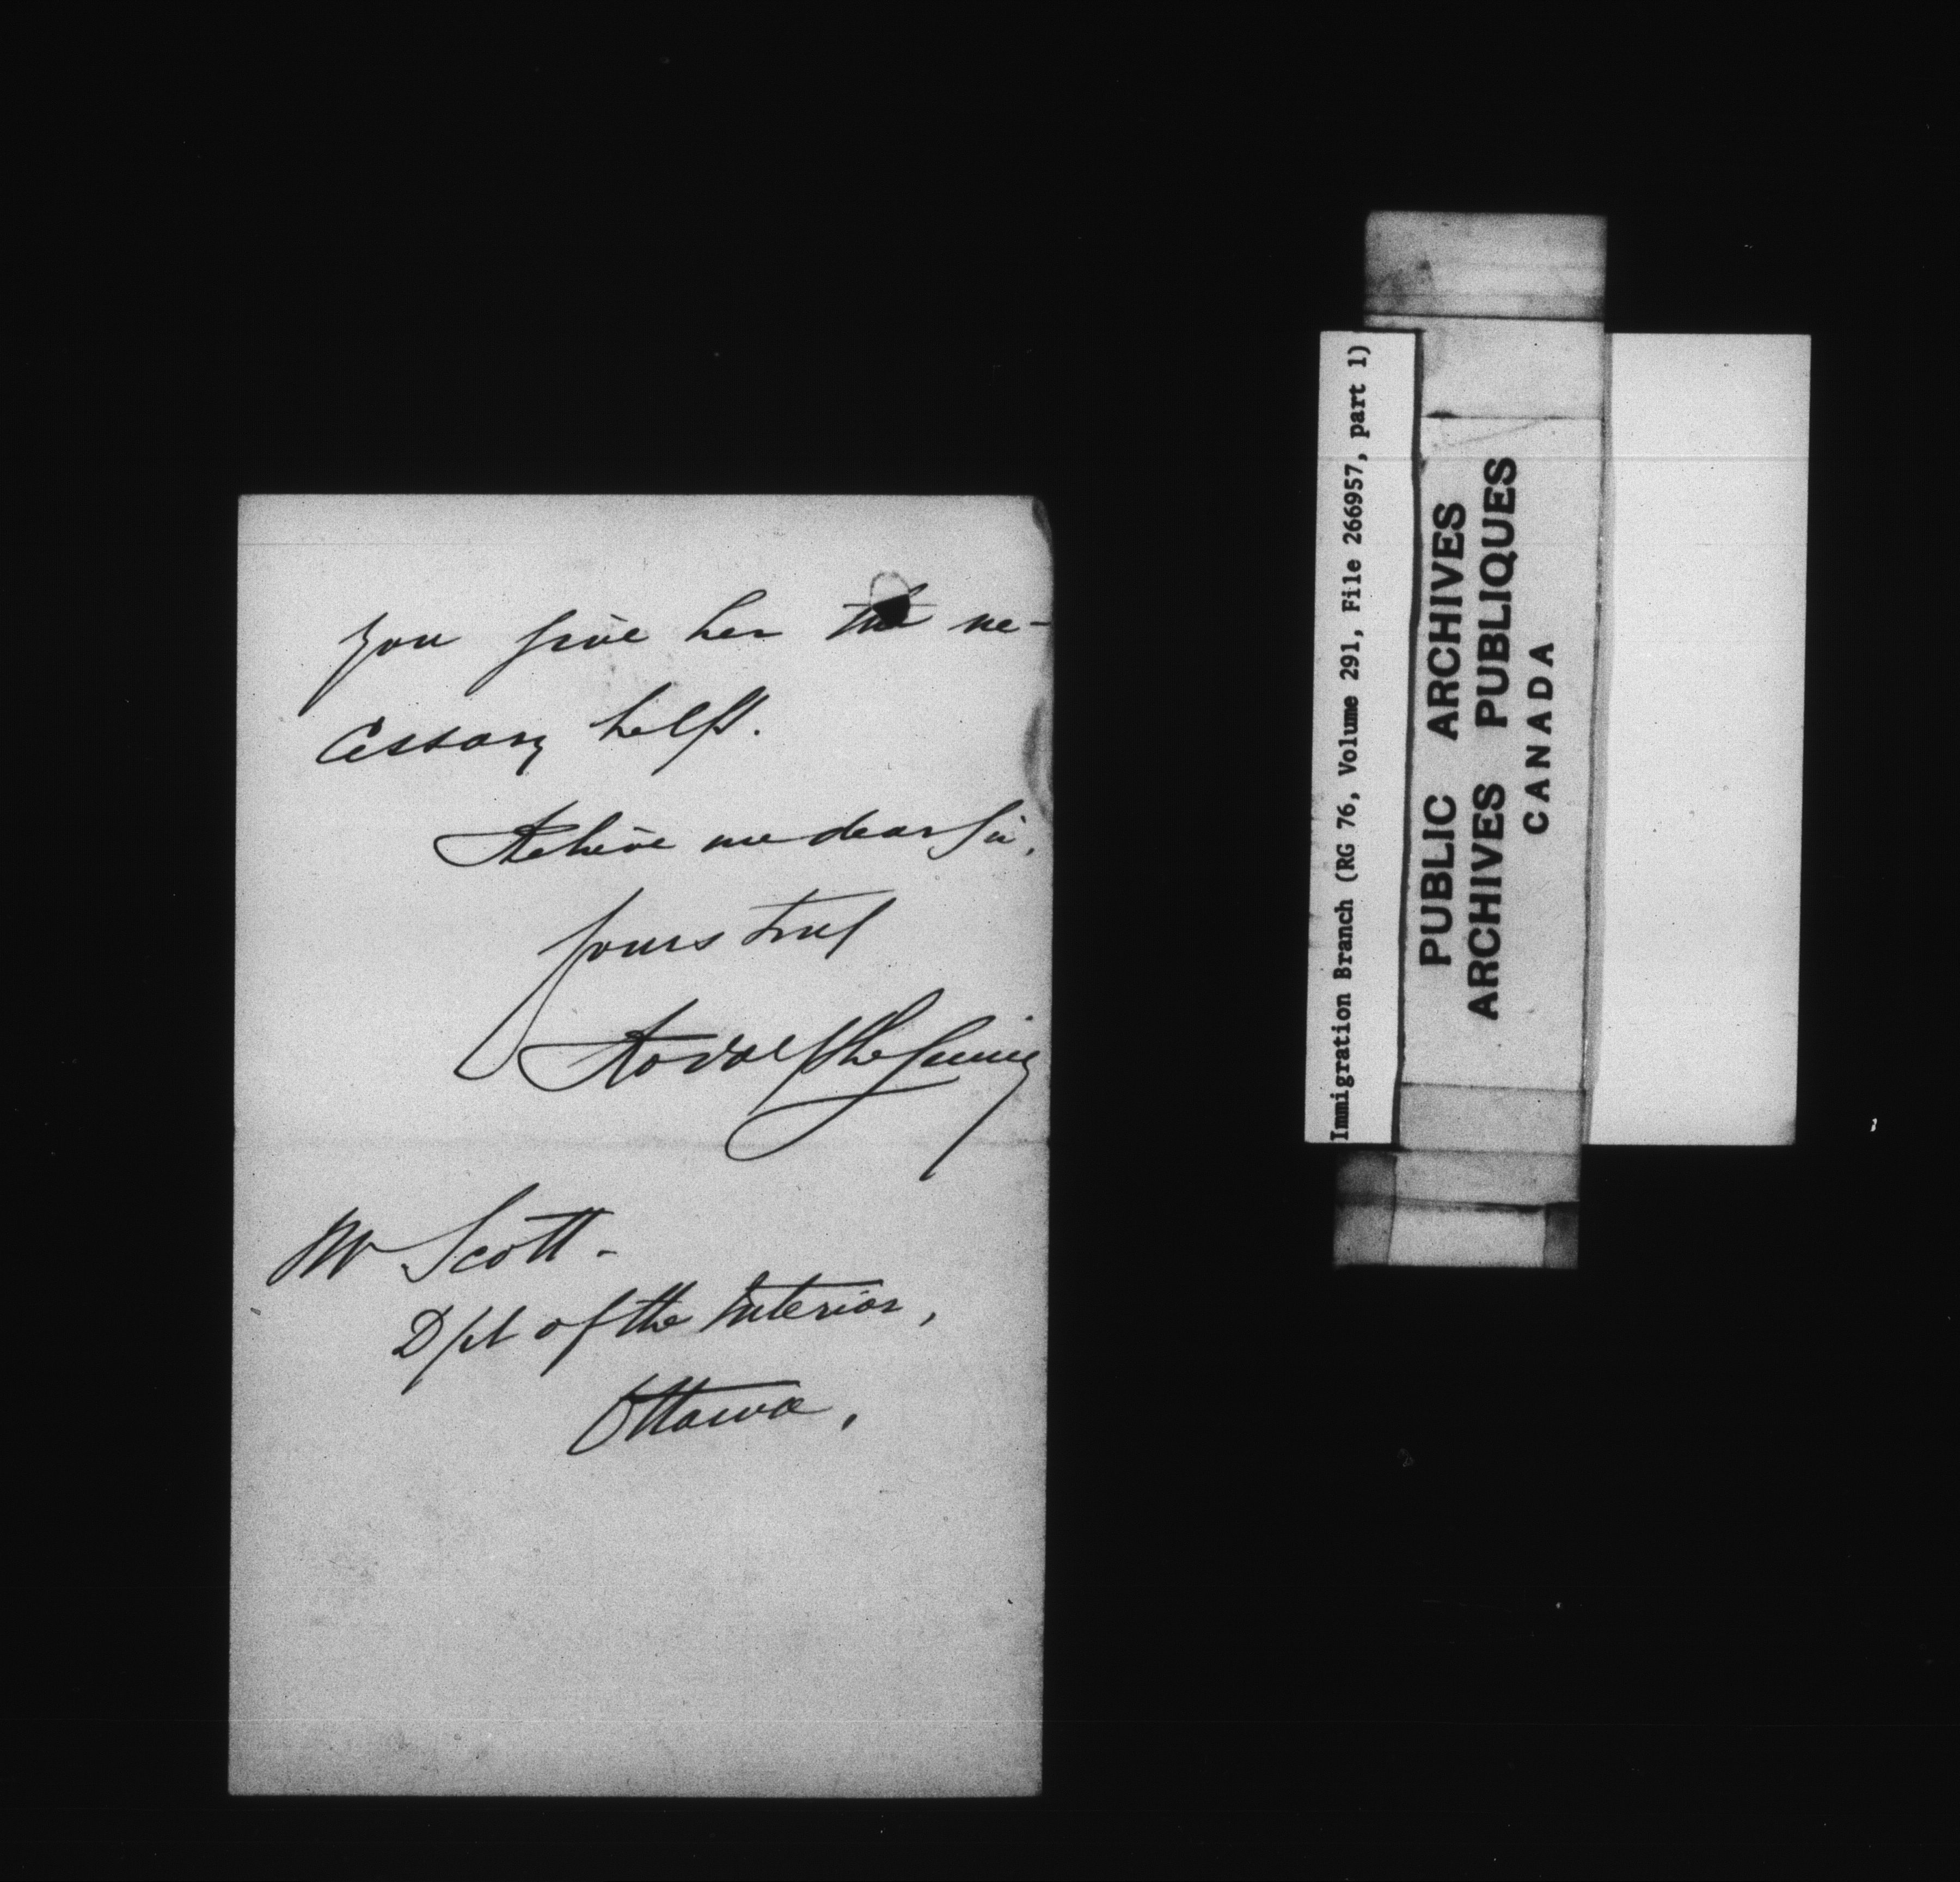 you give her the ne-
cessary help.
Believe me dear Sir,
yours truly
Rodolphe Lemieux
Mr Scott -
Dpt of the Interior,
Ottawa,
Immigration Branch (RG 76, Volume 291, File 266957, part 1)
PUBLIC ARCHIVES
ARCHIVES PUBLIQUES
CANADA